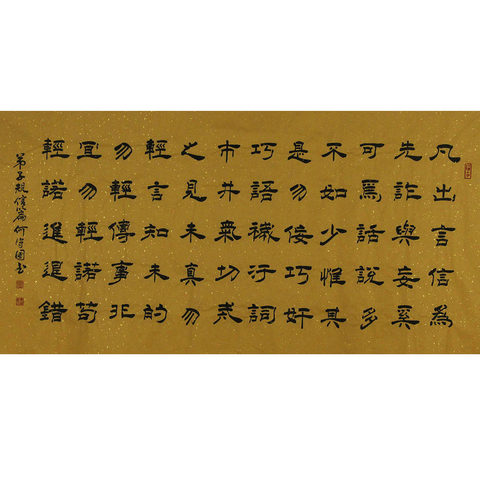 凡出言信為
先詐與妄奚
可焉話說多
不如少惟其
是勿佞巧奸
巧語穢汙詞
市井氣切戒
之見未真勿
輕言知未的
勿輕傳事非
宜勿輕諾苟
輕諾進退錯
弟子規信篇何国书